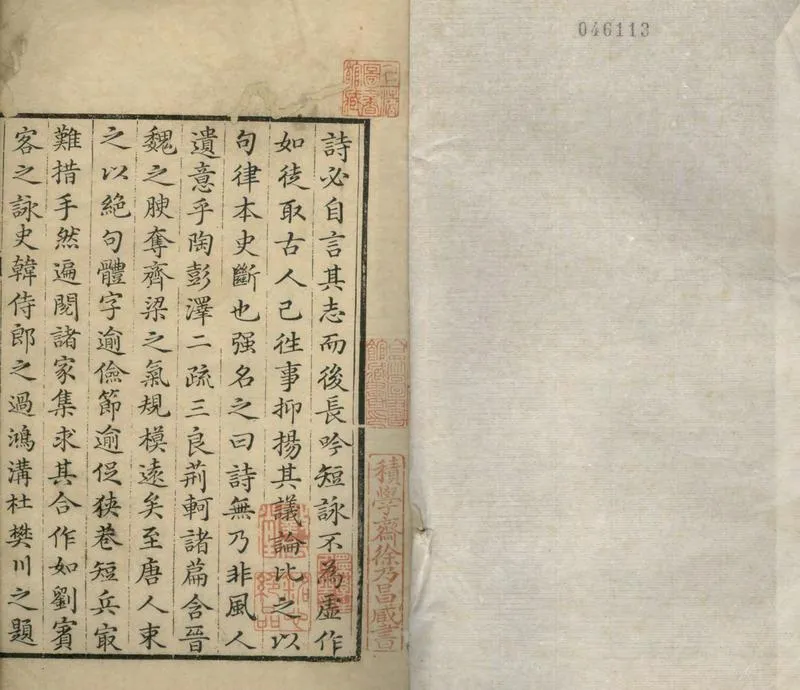 046113
詩必自言其志而後長吟短詠不為虛作
如徒取古人已徃事抑揚其議論比之以
句律本史斷也强名之曰詩無乃非風人
遺意乎陶彭澤二疏三良荊軻諸篇含晉
魏之腴奪齊梁之氣規模遠矣至唐人束
之以絕句體字逾儉節逾促狹巷短兵㝡
難措手然遍閱諸家集求其合作如劉賓
客之詠史韓侍郎之過鴻溝杜樊川之題
積學齋徐乃昌臧書